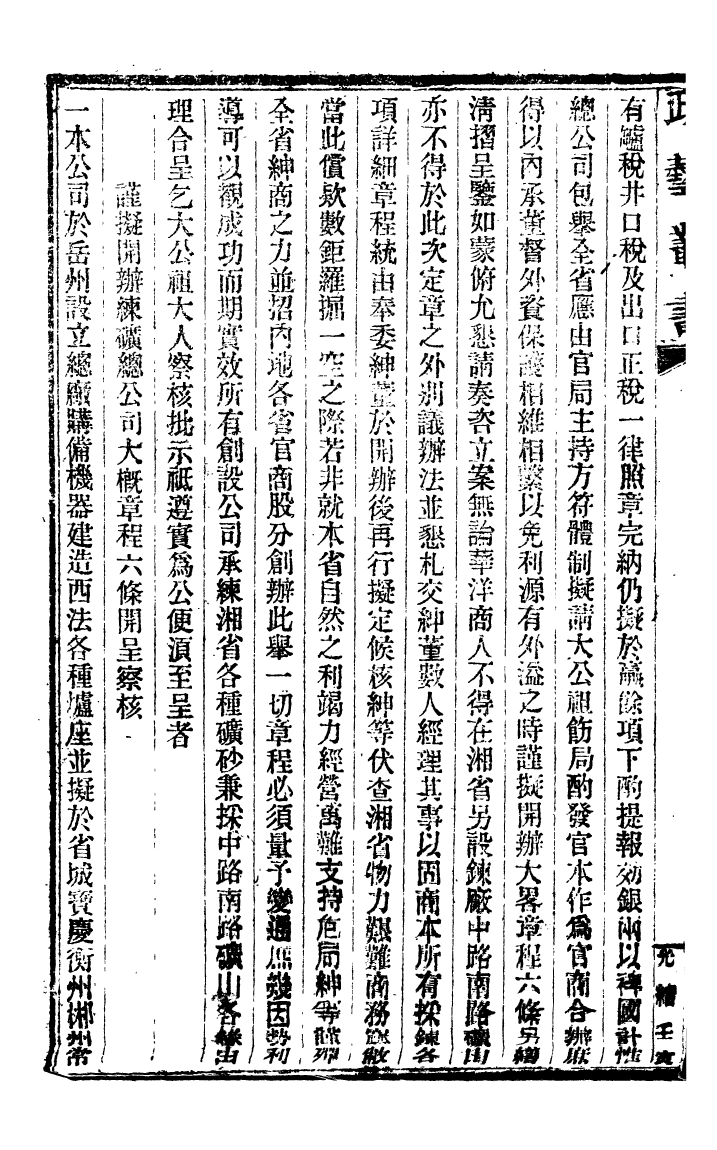 政藝叢書
光緒壬寅
有爐稅井口稅及出口正稅一律照章完納仍擬於贏餘項下酌提報効銀兩以裨國計惟
總公司包舉全省應由官局主持方符體制擬請大公祖飭局酌發官本作為官商合辦庶
得以內承董督外資保護相維相繫以免利源有外溢之時謹擬開辦大畧章程六條另繕
清摺呈鑒如蒙俯允懇請奏咨立案無論華洋商人不得在湘省另設鍊廠中路南路礦山
亦不得於此次定章之外別議辦法並懇札交紳董數人經理其事以固商本所有採鍊各
項詳細章程統由奉委紳董於開辦後再行擬定候核紳等伏查湘省物力艱難商務
當此償欵數鉅羅掘一空之際若非就本省自然之利竭力經營萬難支持危局紳等謹殫
全省紳商之力並招內地各省官商股分創辦此舉一切章程必須量予變通庶幾因勢利
導可以觀成功而期實效所有創設公司承練湘省各種礦砂兼採中路南路礦山各緣由
理合呈乞大公祖大人察核批示祇遵實為公便須至呈者
謹擬開辦練礦總公司大概章程六條開呈察核
一本公司於岳州設立總廠購備機器建造西法各種爐座並擬於省城寶慶衡州郴州常